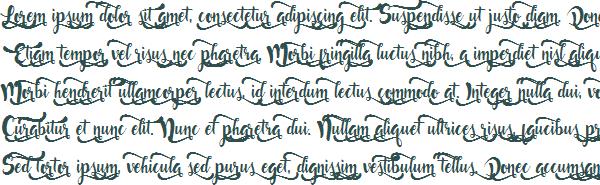 Lorem ipsum dolor sit amet, consectetur adipiscing elit. Suspendisse ut justo diam. Done
Etiam tempor vel risus nec pharetra. Morbi fringilla luctus nibh, a imperdiet nisl aliqu
Morbi hendrerit ullamcorper lectus, id interdum lectus commodo at. Integer nulla dui, ve
Curabitur et nunc elit. Nunc et pharetra dui. Nullam aliquet ultrices risus, faucibus pr
Sed tortor ipsum, vehicula sed purus eget, dignissim vestibulum tellus. Donec accumsan